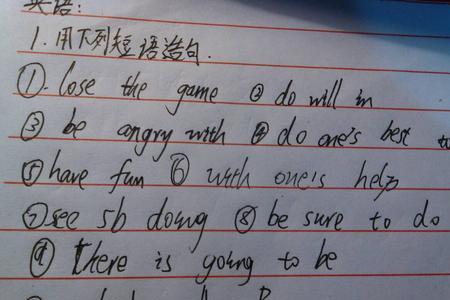 英语:
1. 用下列短语造句.
①. lose the game ② do will in
③ be angry with ④ do one's best to
⑤ have fun ⑥ with one's help
⑦ see sb doing ⑧ be sure to do
⑨ There is going to be